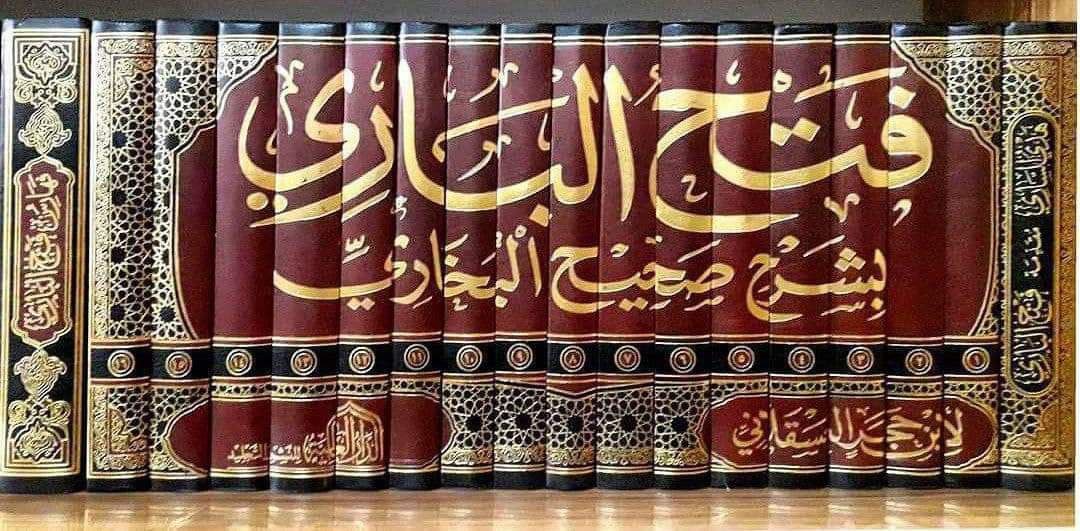 هدي الساري مقدمة فتح الباري
فتح الباري
بشرح صحيح البخاري
١ ٢ ٣ ٤ ٥ ٦ ٧ ٨ ٩ ١٠ ١١ ١٢ ١٣ ١٤ ١٥ ١٦
لابن حجر العسقلاني
الدار العالمية للنشر
فهارس فتح الباري